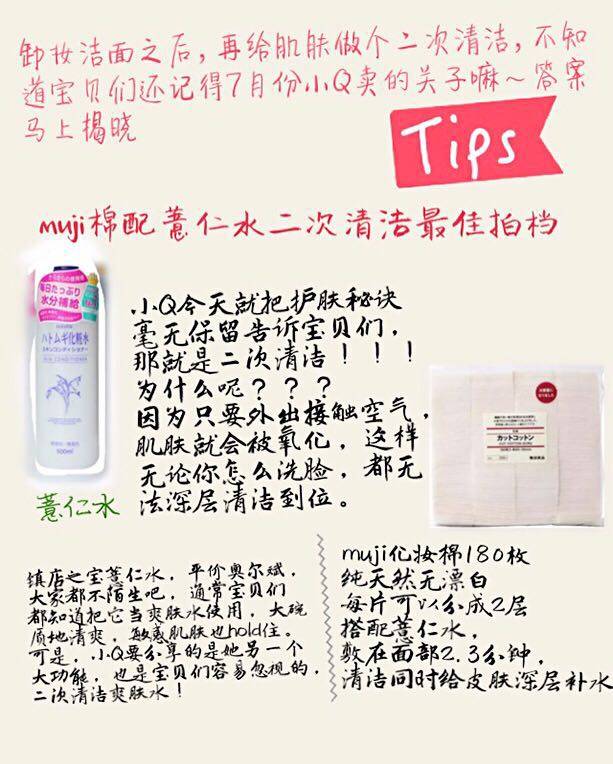 卸妆洁面之后,再给肌肤做个二次清洁,不知
道宝贝们还记得7月份小Q卖的关子嘛~答案
马上揭晓
Tips
muji棉配薏仁水二次清洁最佳拍档
毎日たっぷり
水分補給
ハトムギ化粧水
スキンコンディショナー
500ml
薏仁水
小Q今天就把护肤秘诀
毫无保留告诉宝贝们,
那就是二次清洁!!!
为什么呢???
因为只要外出接触空气,
肌肤就会被氧化,这样
无论你怎么洗脸,都无
法深层清洁到位。
カットコットン
镇店之宝薏仁水,平价奥尔滨,
大家都不陌生吧,通常宝贝们
都知道把它当爽肤水使用,大碗
质地清爽,敏感肌肤也hold住。
可是,小Q要分享的是她另一个
大功能,也是宝贝们容易忽视的,
二次清洁爽肤水!
muji化妆棉180枚
纯天然无漂白
每片可以分成2层
搭配薏仁水,
敷在面部2.3分钟,
清洁同时给皮肤深层补水